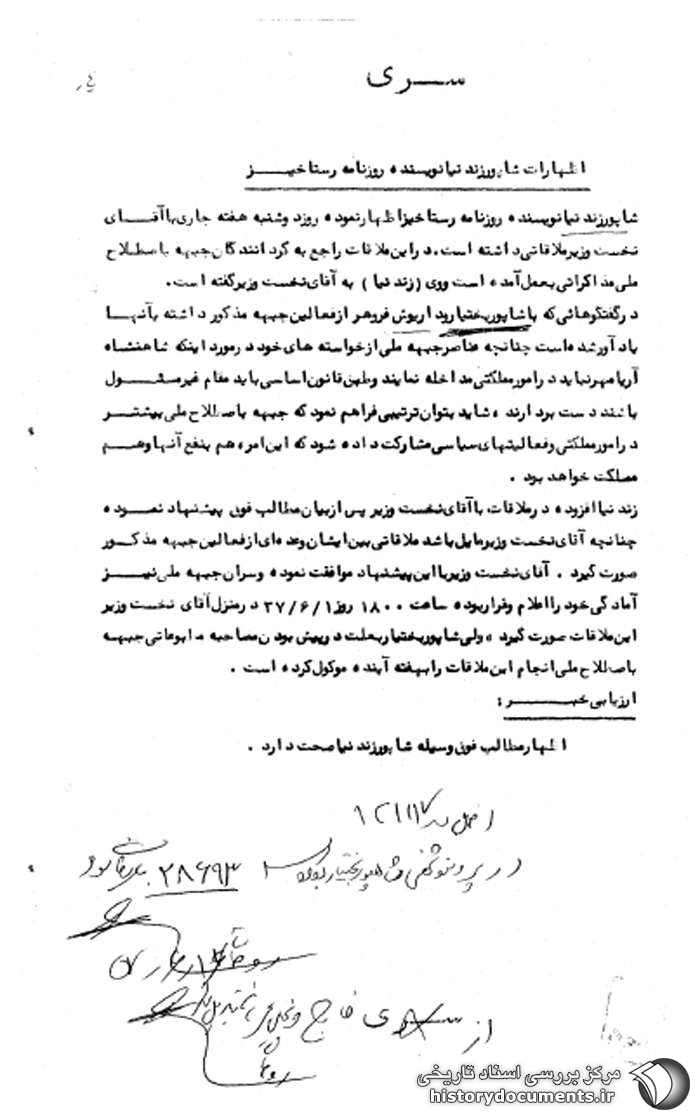 سری
اظهارات شاپور زند نیا نویسنده روزنامه رستاخیز
شاپور زند نیا نویسنده روزنامه رستاخیز اظهار نموده روز دوشنبه هفته جاری با آقای
نخست وزیر ملاقاتی داشته است. در این ملاقات راجع به گردانندگان جبهه باصطلاح
ملی مذاکراتی بعمل آمده است ووی (زند نیا) به آقای نخست وزیر گفته است.
در گفتگوهائی که با شاپور بختیار و داریوش فروهر از فعالین جبهه مذکور داشته بآنها
یادآور شده است چنانچه عناصر جبهه ملی از خواسته های خود در مورد اینکه شاهنشاه
آریامهر نباید در امور مملکتی مداخله نمایند و طبق قانون اساسی باید مقام غیر مسئول
باشند دست بردارند، شاید بتوان ترتیبی فراهم نمود که جبهه باصطلاح ملی بیشتر
در امور مملکتی و فعالیتهای سیاسی مشارکت داده شود که این امر، هم بنفع آنها و هم
مملکت خواهد بود.
زند نیا افزوده در ملاقات با آقای نخست وزیر پس از بیان مطالب فوق پیشنهاد نموده
چنانچه آقای نخست وزیر مایل باشد ملاقاتی بین ایشان وعده ای از فعالین جبهه مذکور
صورت گیرد. آقای نخست وزیر با این پیشنهاد موافقت نموده و سران جبهه ملی نیز
آمادگی خود را اعلام و قرار بوده ساعت ۱۸۰۰ روز ۳۷/۶/۱ در منزل آقای نخست وزیر
این ملاقات صورت گیرد، ولی شاپور بختیار بعلت در پیش بودن مصاحبه مطبوعاتی جبهه
باصطلاح ملی انجام این ملاقات را بهفته آینده موکول کرده است.
ارزیابی خبر:
اظهار مطالب فوق وسیله شاپور زند نیا صحت دارد.
اصل در
در پرونده شاهپور بختیار ۲۸۶۹۳ بایگانی شود
از سری خارج
مرکز بررسی اسناد تاریخی
historydocuments.ir